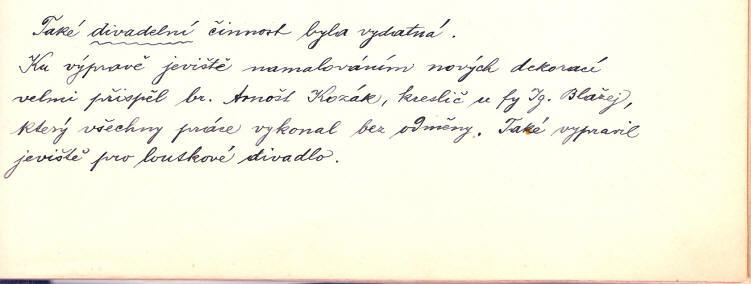 Také divadelní činnost byla vydatná.
Ku výpravě jeviště namalováním nových dekorací
velmi přispěl br. Arnošt Kozák, kreslič u fy Ig. Blažej,
který všechny práce vykonal bez odměny. Také vypravil
jeviště pro loutkové divadlo.